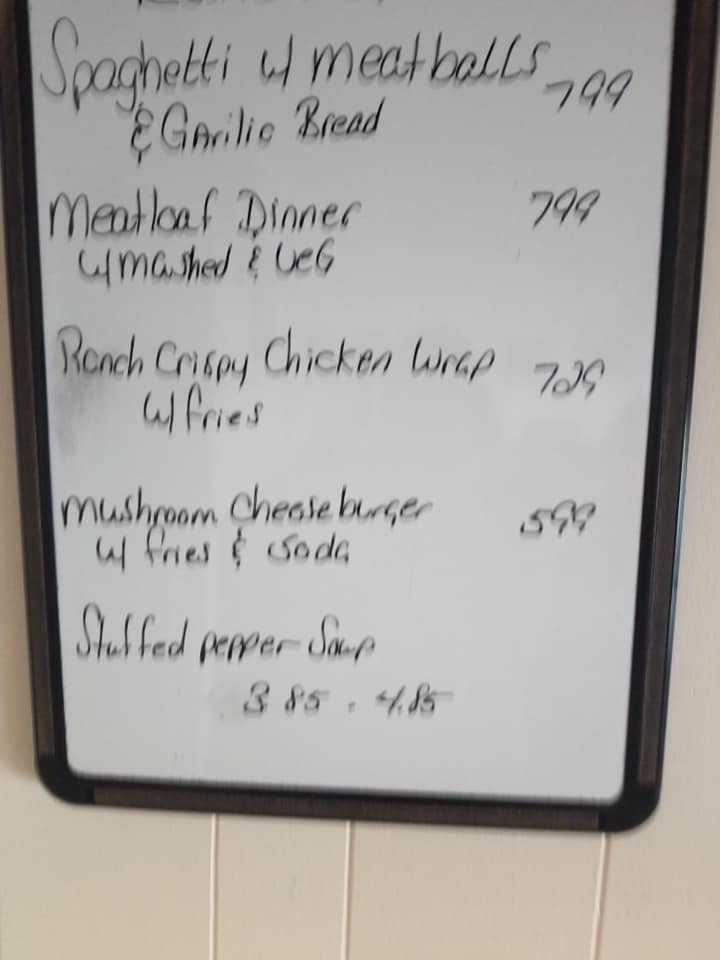 Spaghetti w/ meatballs 799
& Garilic Bread
Meatloaf Dinner 799
w/mashed & veG
Ranch Crispy Chicken Wrap 729
w/ fries
mushroom cheeseburger 599
w/ fries & Soda
Stuffed pepper Soup
3 85 . 4.85